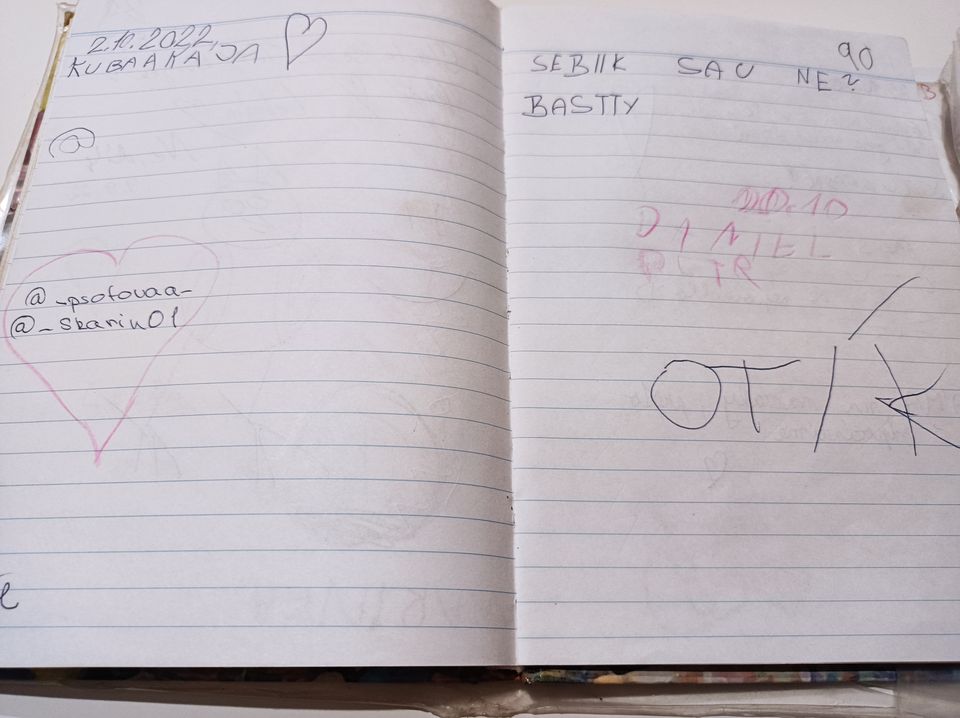 2.10.2022,
KUBAAKAJA
@
@_psotovaa_
@_skarin01
90
SEBIIK SAU NE?
BASTTY
10.10
DANIEL
PETR
OTÍK